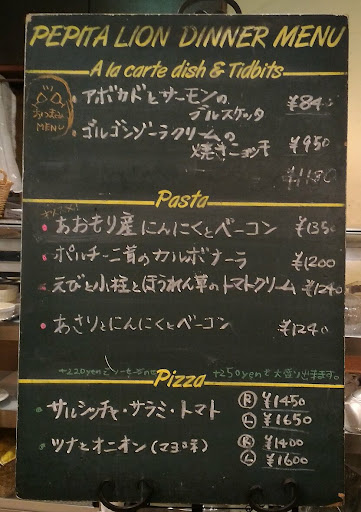 PEPITA LION DINNER MENU
A la carte dish & Tidbits
おつまみ
MENU
・アボカドとサーモンの
ブルスケッタ ¥840
・ゴルゴンゾーラクリームの
焼きニョッキ ¥950
¥1180
Pasta
・あおもり産にんにくとベーコン ¥1350
・ポルチーニ茸のカルボナーラ ¥1200
・えびと小柱とほうれん草のトマトクリーム ¥1240
・あさりとにんにくとベーコン ¥1240
+220yenで +250yenで大盛り出来ます。
Pizza
・サルシッチャ・サラミ・トマト Ⓡ ¥1450
Ⓛ ¥1650
・ツナとオニオン(マヨ味) Ⓡ ¥1400
Ⓛ ¥1600